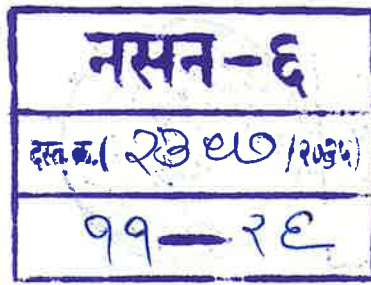 नसन-६
दस्त क्र.( २३९७ /२०२५)
११ — २६